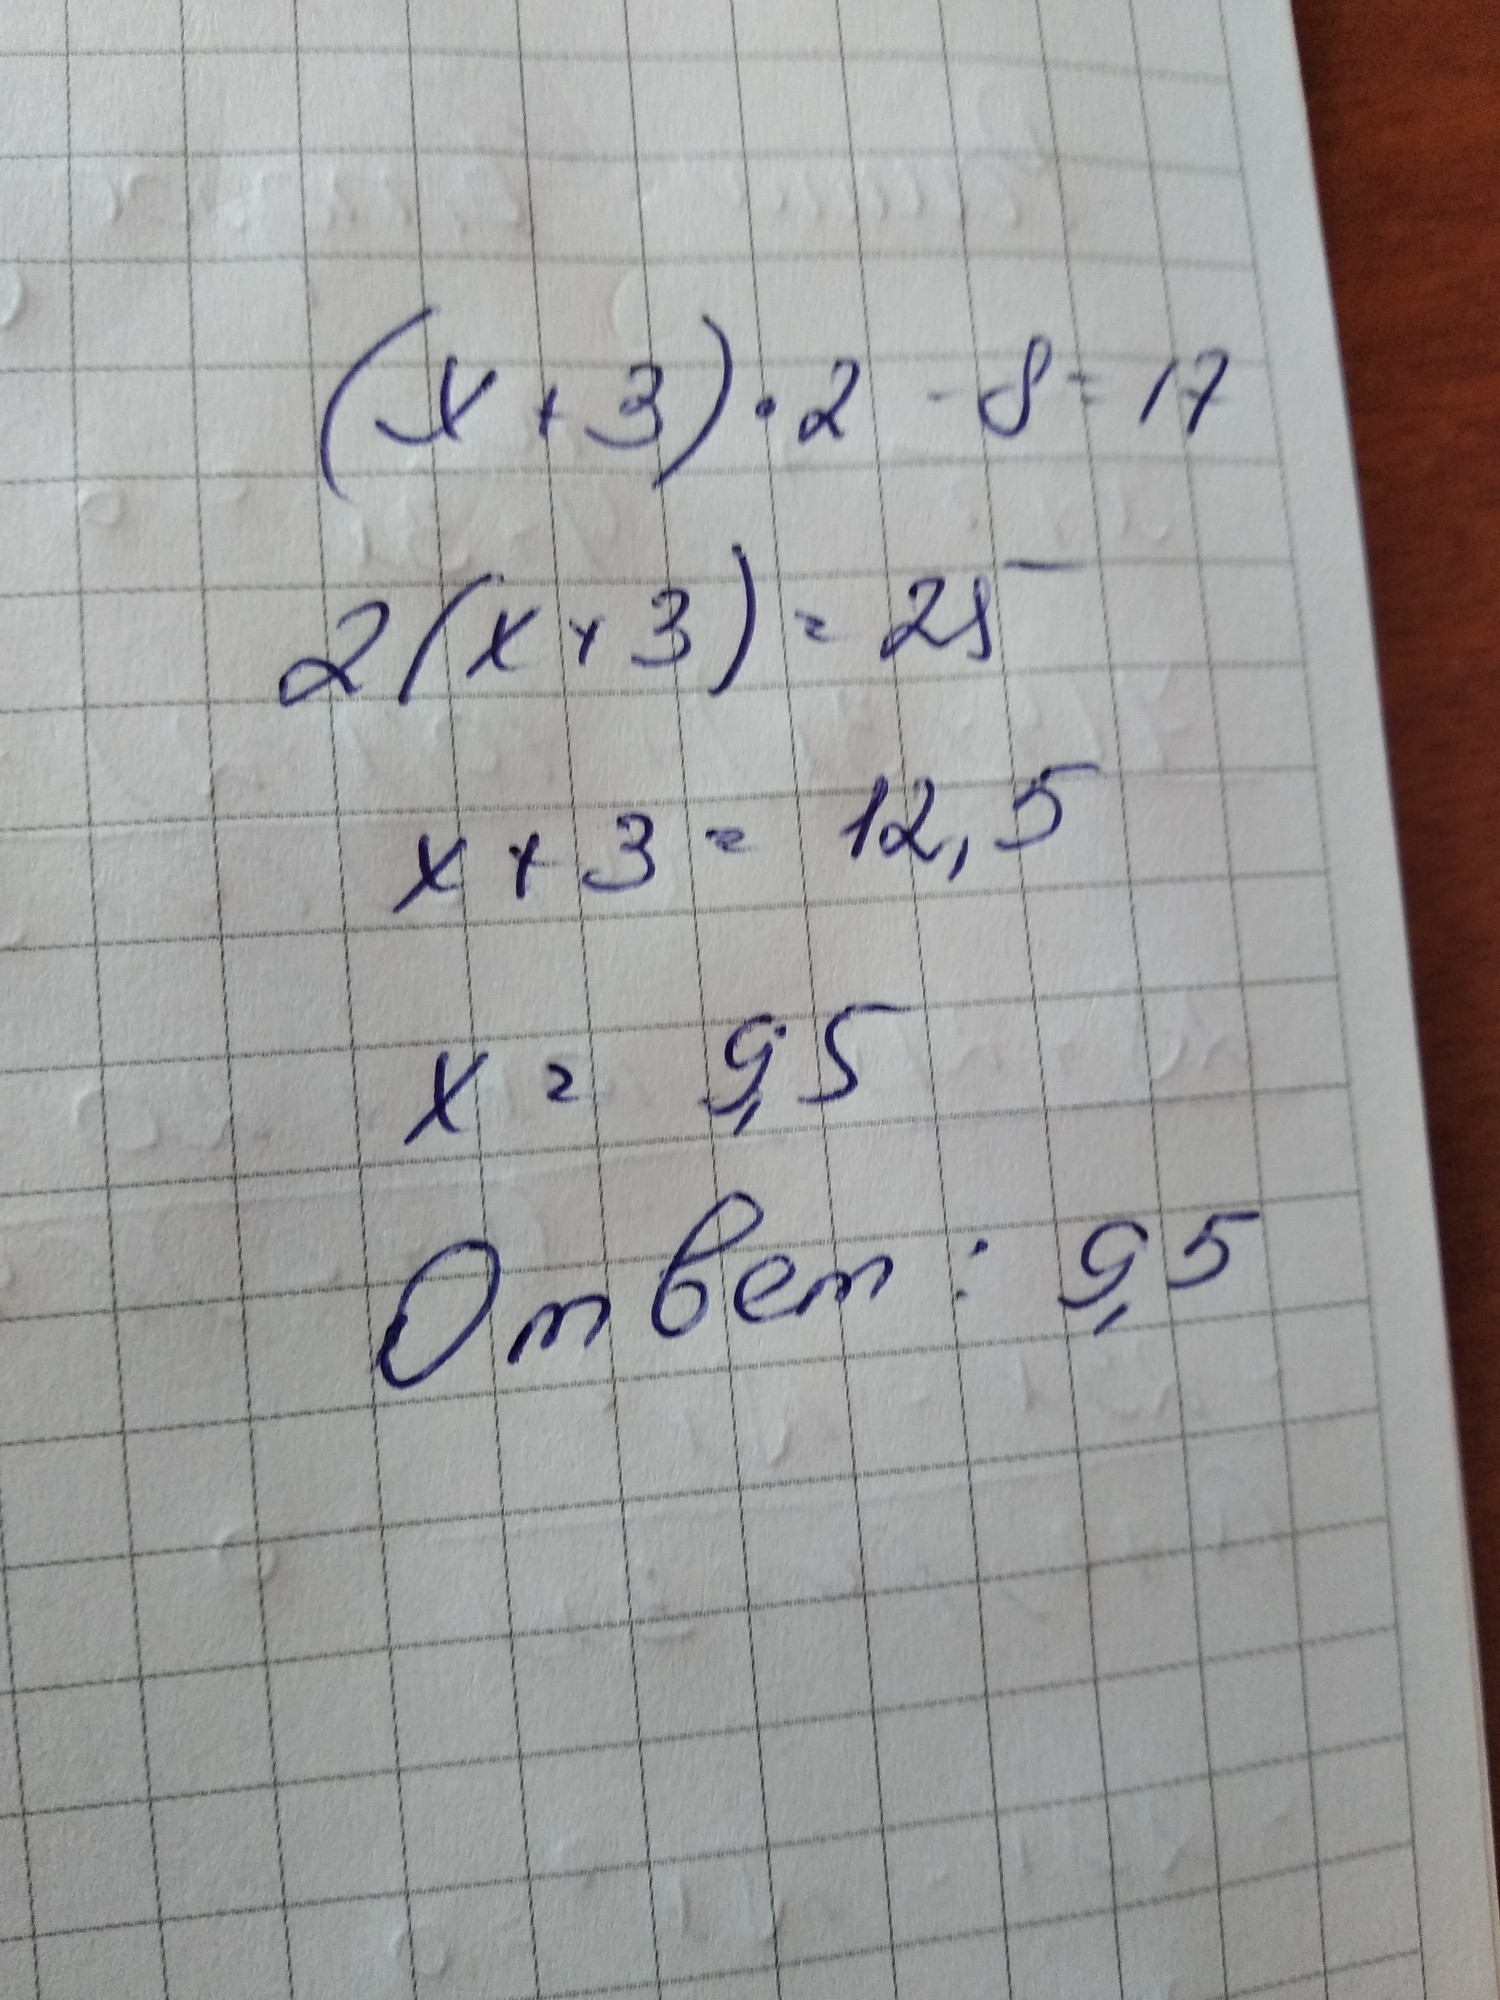 (x + 3) · 2 - 8 = 17
2(x + 3) = 25
x + 3 = 12,5
x = 9,5
Ответ: 9,5